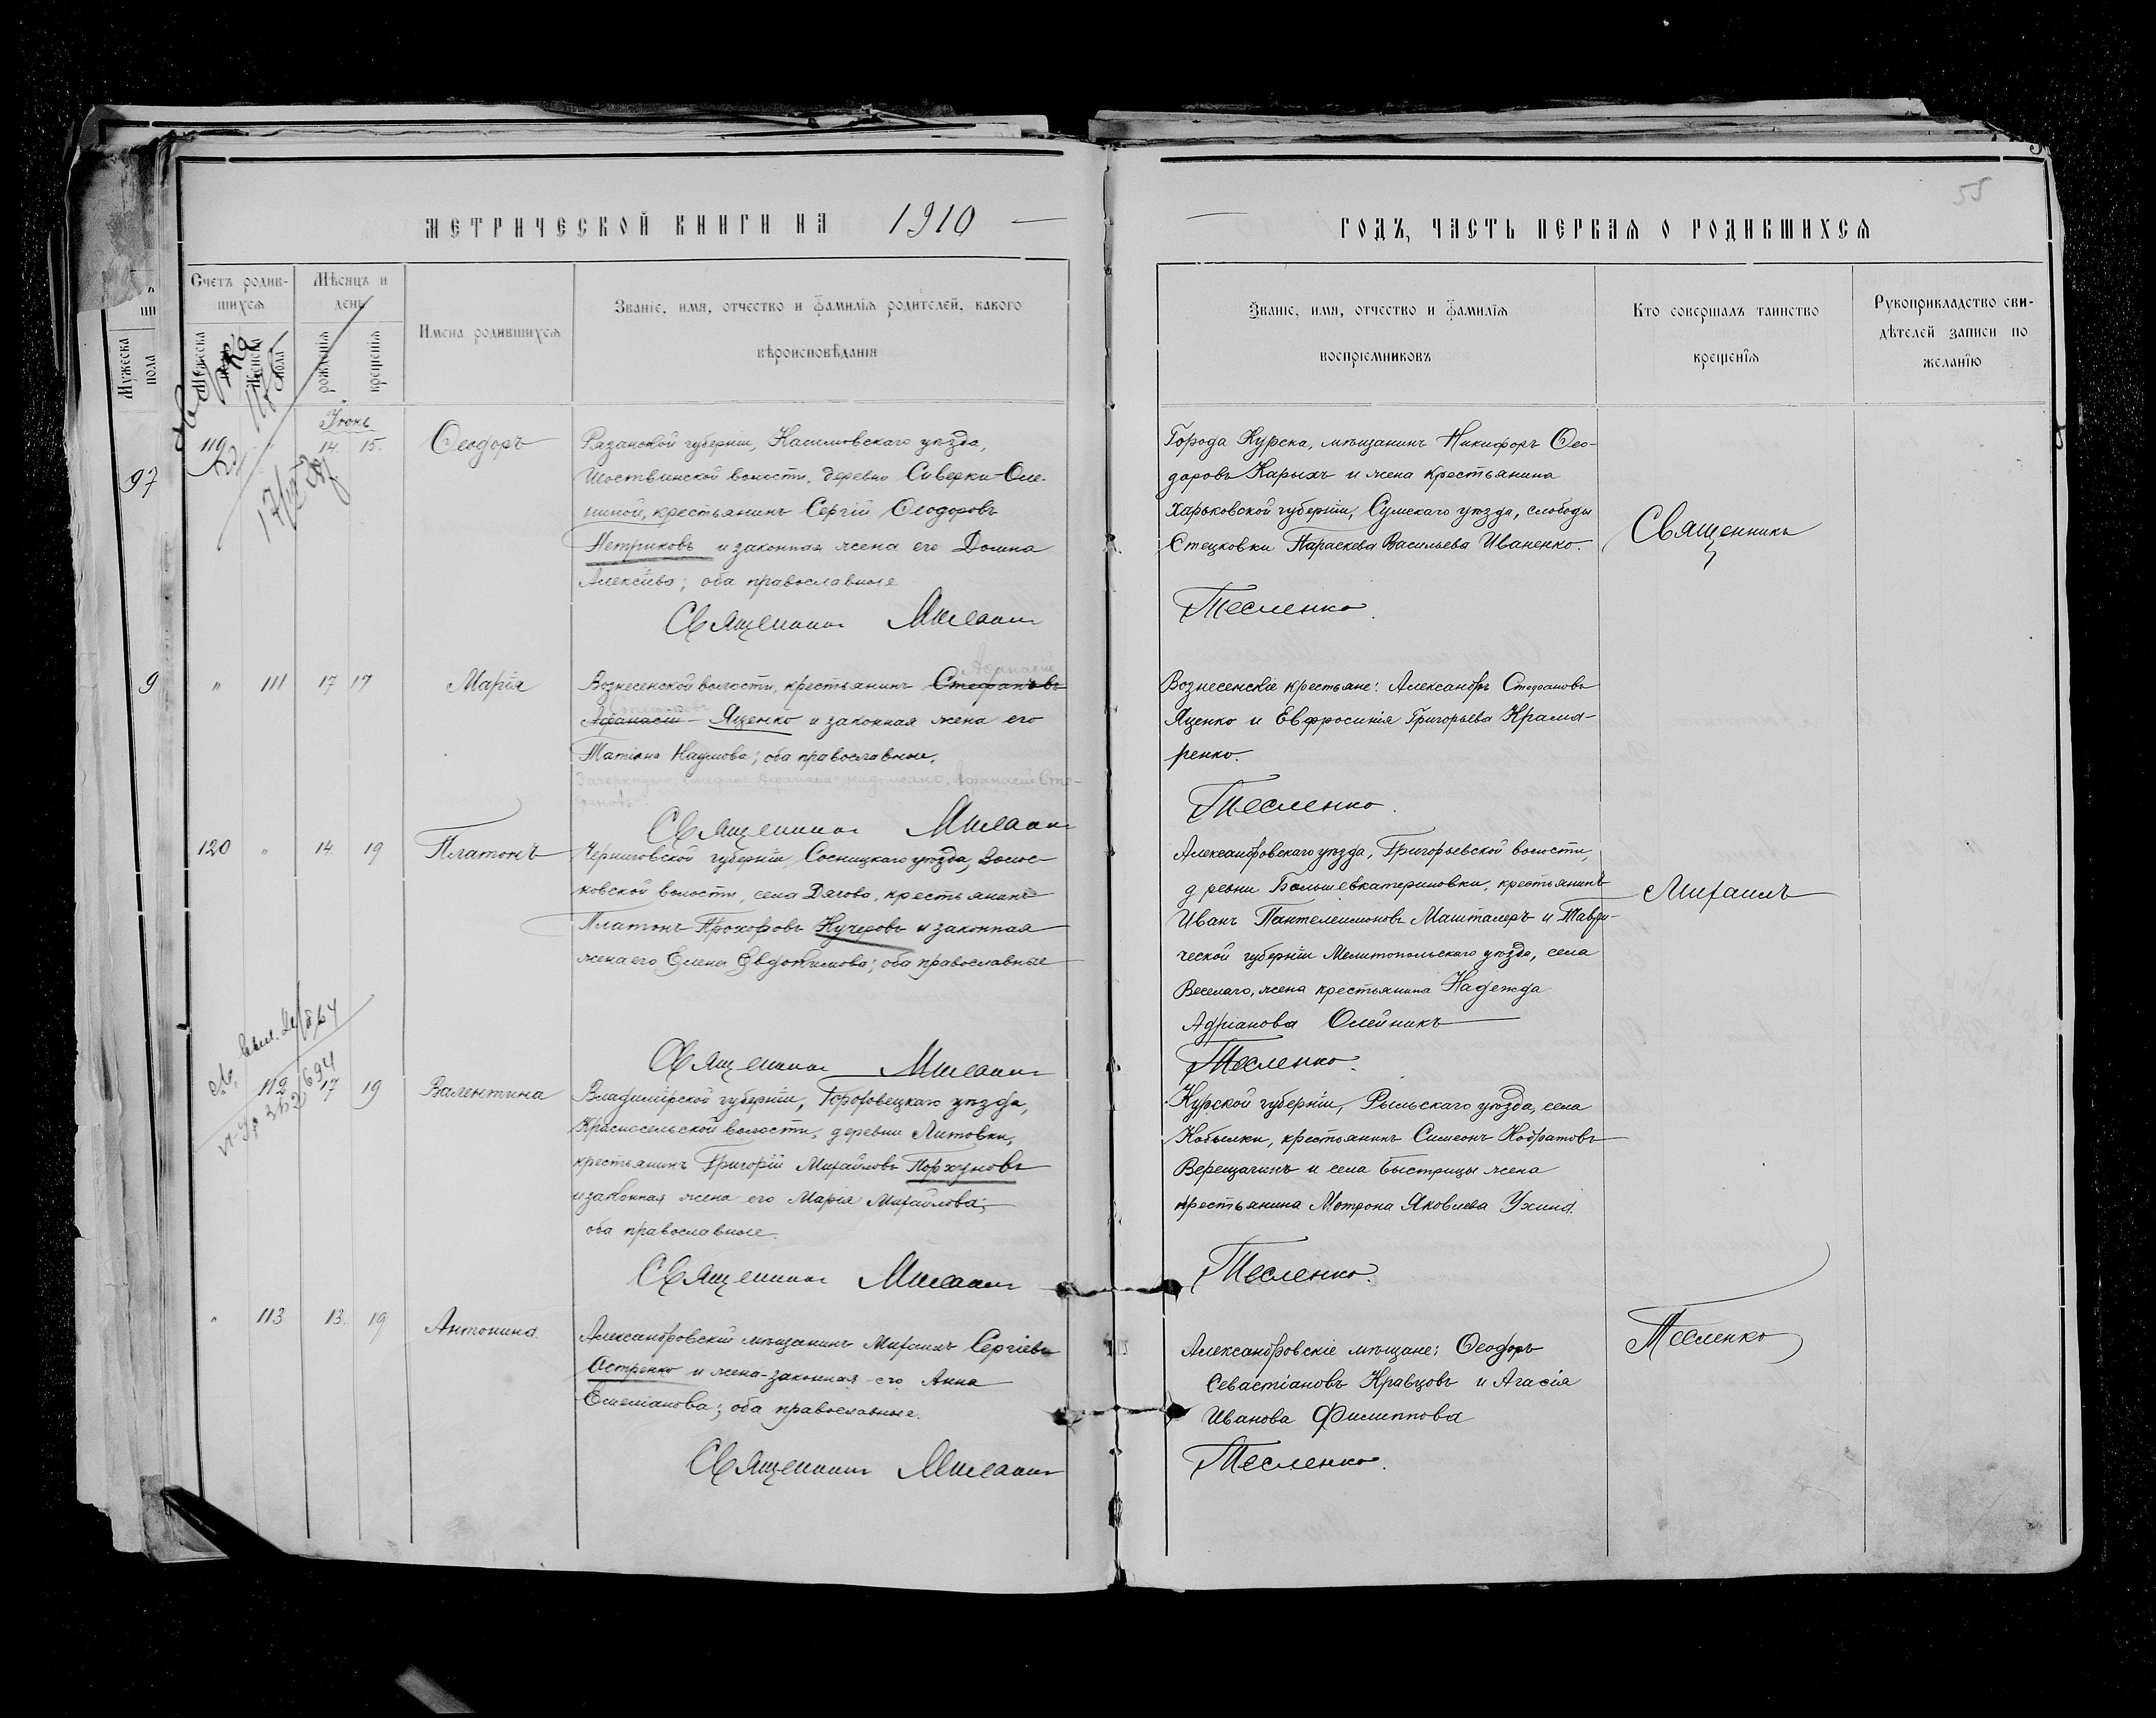 МЕТРИЧЕСКОЙ КНИГИ НА 1910
Счетъ родив-
шихся
Мѣсяцъ и
день
Мужеска
пола
Мужеска
Женска
пола
рожденія
крещенія
Имена родившихся
Званіе, имя, отчество и фамилія родителей, какого
вѣроисповѣданія
97
9
Іюнь
119 " 14. 15. Ѳеодоръ
Рязанской губерніи, Касимовскаго уѣзда,
волости, деревни Сиверки-Оле-
ниной, крестьянинъ Сергій Ѳеодоровъ
Петриковъ и законная жена его Домна
Алексіева; оба православные
Священникъ
" 111 17 17 Марія
Афанасій
Вознесенской волости, крестьянинъ Стефановъ
Стефановъ
Афанасій Яценко и законная жена его
Татіана Наумова; оба православные.
Зачеркнуто „Стефановъ Афанасій" надписано „Афанасій Сте-
фановъ".
Священникъ
120 " 14 19 Платонъ
Черниговской губерніи Сосницкаго уѣзда, Волос-
ковской волости, села Дягова, крестьянинъ
Платонъ Прохоровъ Кучеровъ и законная
жена его Елена Евфимова; оба православные
Священникъ
112 17 19 Валентина
Владимірской губерніи, Гороховецкаго уѣзда,
Красносельской волости, деревни Литовки,
крестьянинъ Григорій Михайловъ Порхуновъ
и законная жена его Марія Михайлова;
оба православные.
Священникъ
" 113 13. 19 Антонина.
Александровскій мѣщанинъ Михаилъ Сергіевъ
Остренко и жена-законная его Анна
Емеліанова; оба православные.
Священникъ
ГОДЪ, ЧАСТЬ ПЕРВАЯ О РОДИВШИХСЯ
55
Званіе, имя, отчество и фамилія
воспріемниковъ
Кто совершалъ таинство
крещенія
Рукоприкладство сви-
дѣтелей записи по
желанію
Города Курска, мѣщанинъ Никифоръ Ѳео-
доровъ Карыхъ и жена крестьянина
Харьковской губерніи, Сумскаго уѣзда, слободы
Стецковки Параскева Васильева Иваненко.
Тесленко.
Вознесенскіе крестьяне: Александръ Стефановъ
Яценко и Евфросинія Григорьева Крама-
ренко.
Тесленко.
Александровскаго уѣзда, Григорьевской волости,
деревни Больше-Екатериновки, крестьянинъ
Иванъ Пантелеимоновъ Машталеръ и Таври-
ческой губерніи Мелитопольскаго уѣзда, села
Веселаго, жена крестьянина Надежда
Адріанова Олейникъ
Тесленко.
Курской губерніи, Рыльскаго уѣзда, села
Кобылки, крестьянинъ Симеонъ Кодратовъ
Верещагинъ и села Быстрицы жена
крестьянина Матрона Яковлева Ухина.
Тесленко.
Александровскіе мѣщане: Ѳеодоръ
Севастіановъ Кравцовъ и Агасія
Иванова Филиппова
Тесленко.
Священникъ
Михаилъ
Тесленко